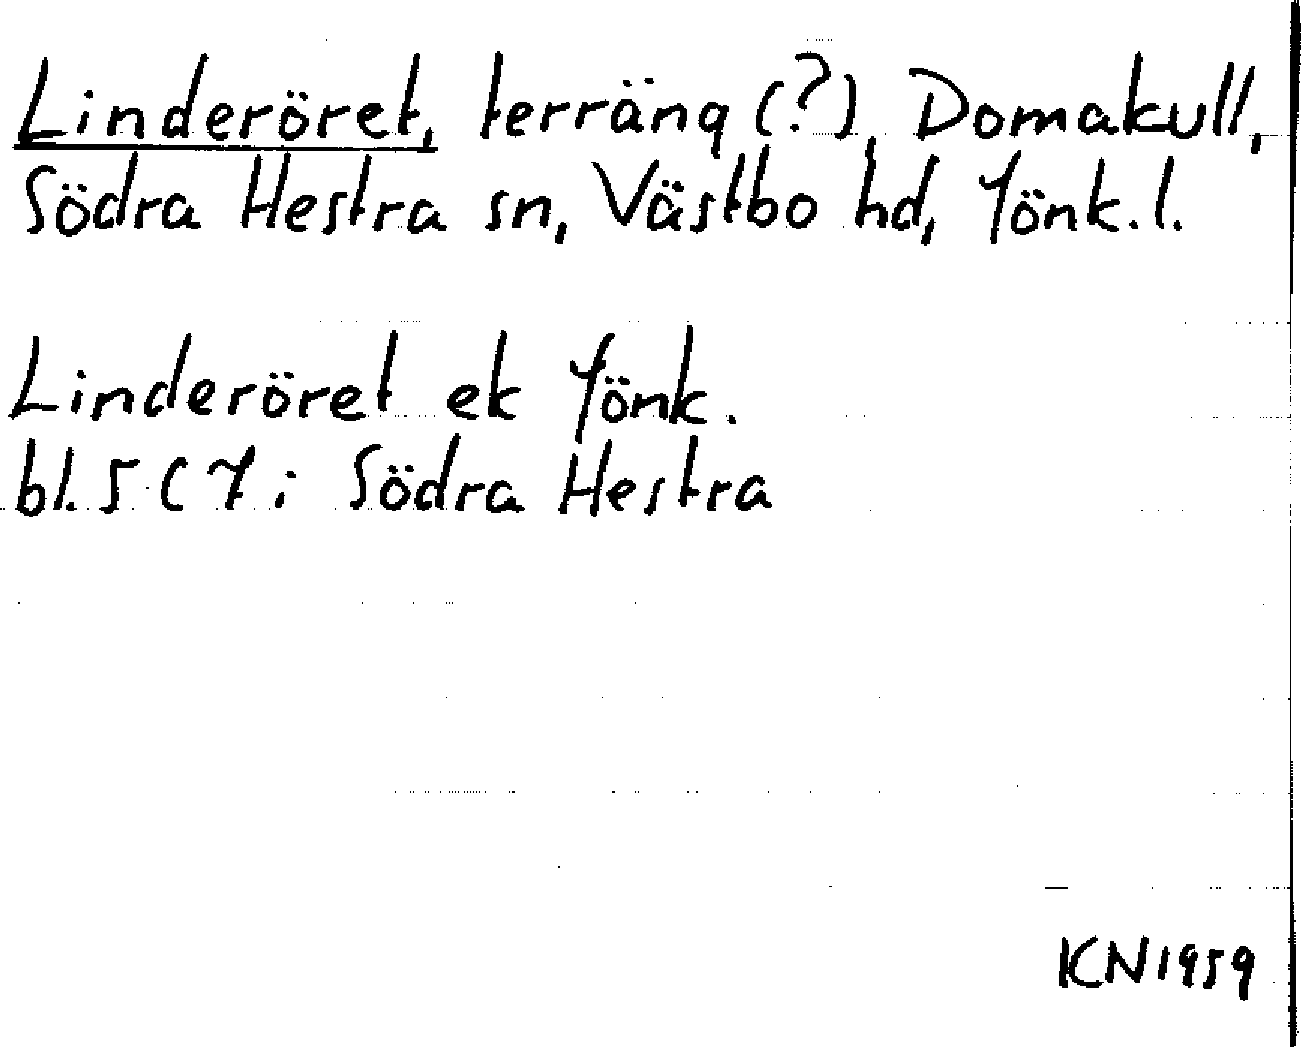 Linderöret, terräng (?), Domakull,
Södra Hestra sn, Västbo hd, Jönk. l.
Linderöret ek Jönk.
bl. 5 C 7 i Södra Hestra
KN 1959